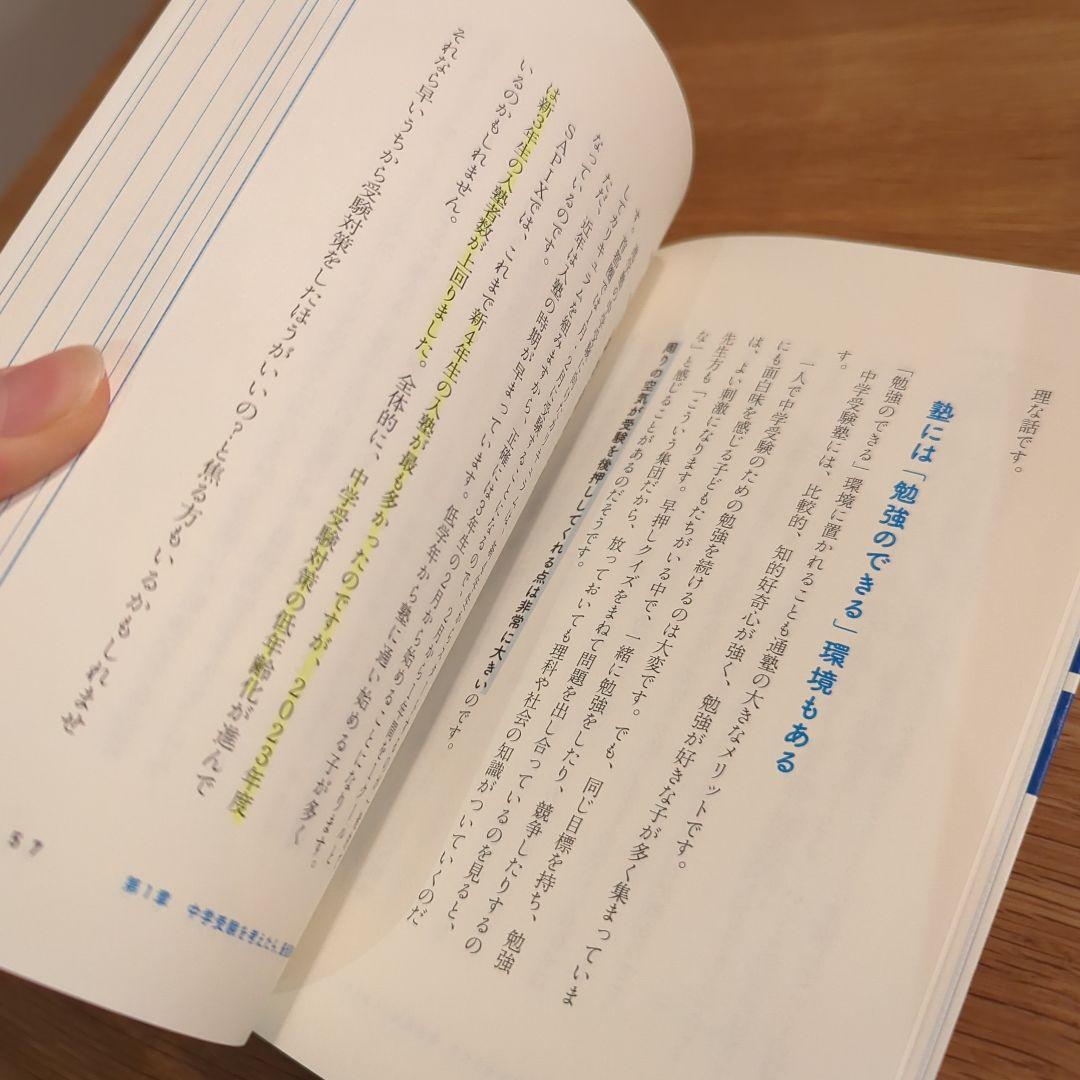 理な話です。
塾には「勉強のできる」環境もある
「勉強のできる」環境に置かれることも通塾の大きなメリットです。
中学受験塾には、比較的、知的好奇心が強く、勉強が好きな子が多く集まっていま
す。
一人で中学受験のための勉強を続けるのは大変です。でも、同じ目標を持ち、勉強
にも面白味を感じる子どもたちがいる中で、一緒に勉強をしたり、競争したりするの
は、よい刺激になります。早押しクイズをまねて問題を出し合っているのを見ると、
先生方も「こういう集団だから、放っておいても理科や社会の知識がついていくのだ
な」と感じることがあるのだそうです。
周りの空気が受験を後押ししてくれる点は非常に大きいのです。
なっているのです。
ただ、近年は入塾の時期が早まっています。低学年から塾に通い始める子が多く
SAPIXでは、これまで新4年生の入塾が最も多かったのですが、2023年度
は新3年生の入塾者数が上回りました。全体的に、中学受験対策の低年齢化が進んで
いるのかもしれません。
それなら早いうちから受験対策をしたほうがいいの?と焦る方もいるかもしれませ
57
第1章 中学受験を考えたら、